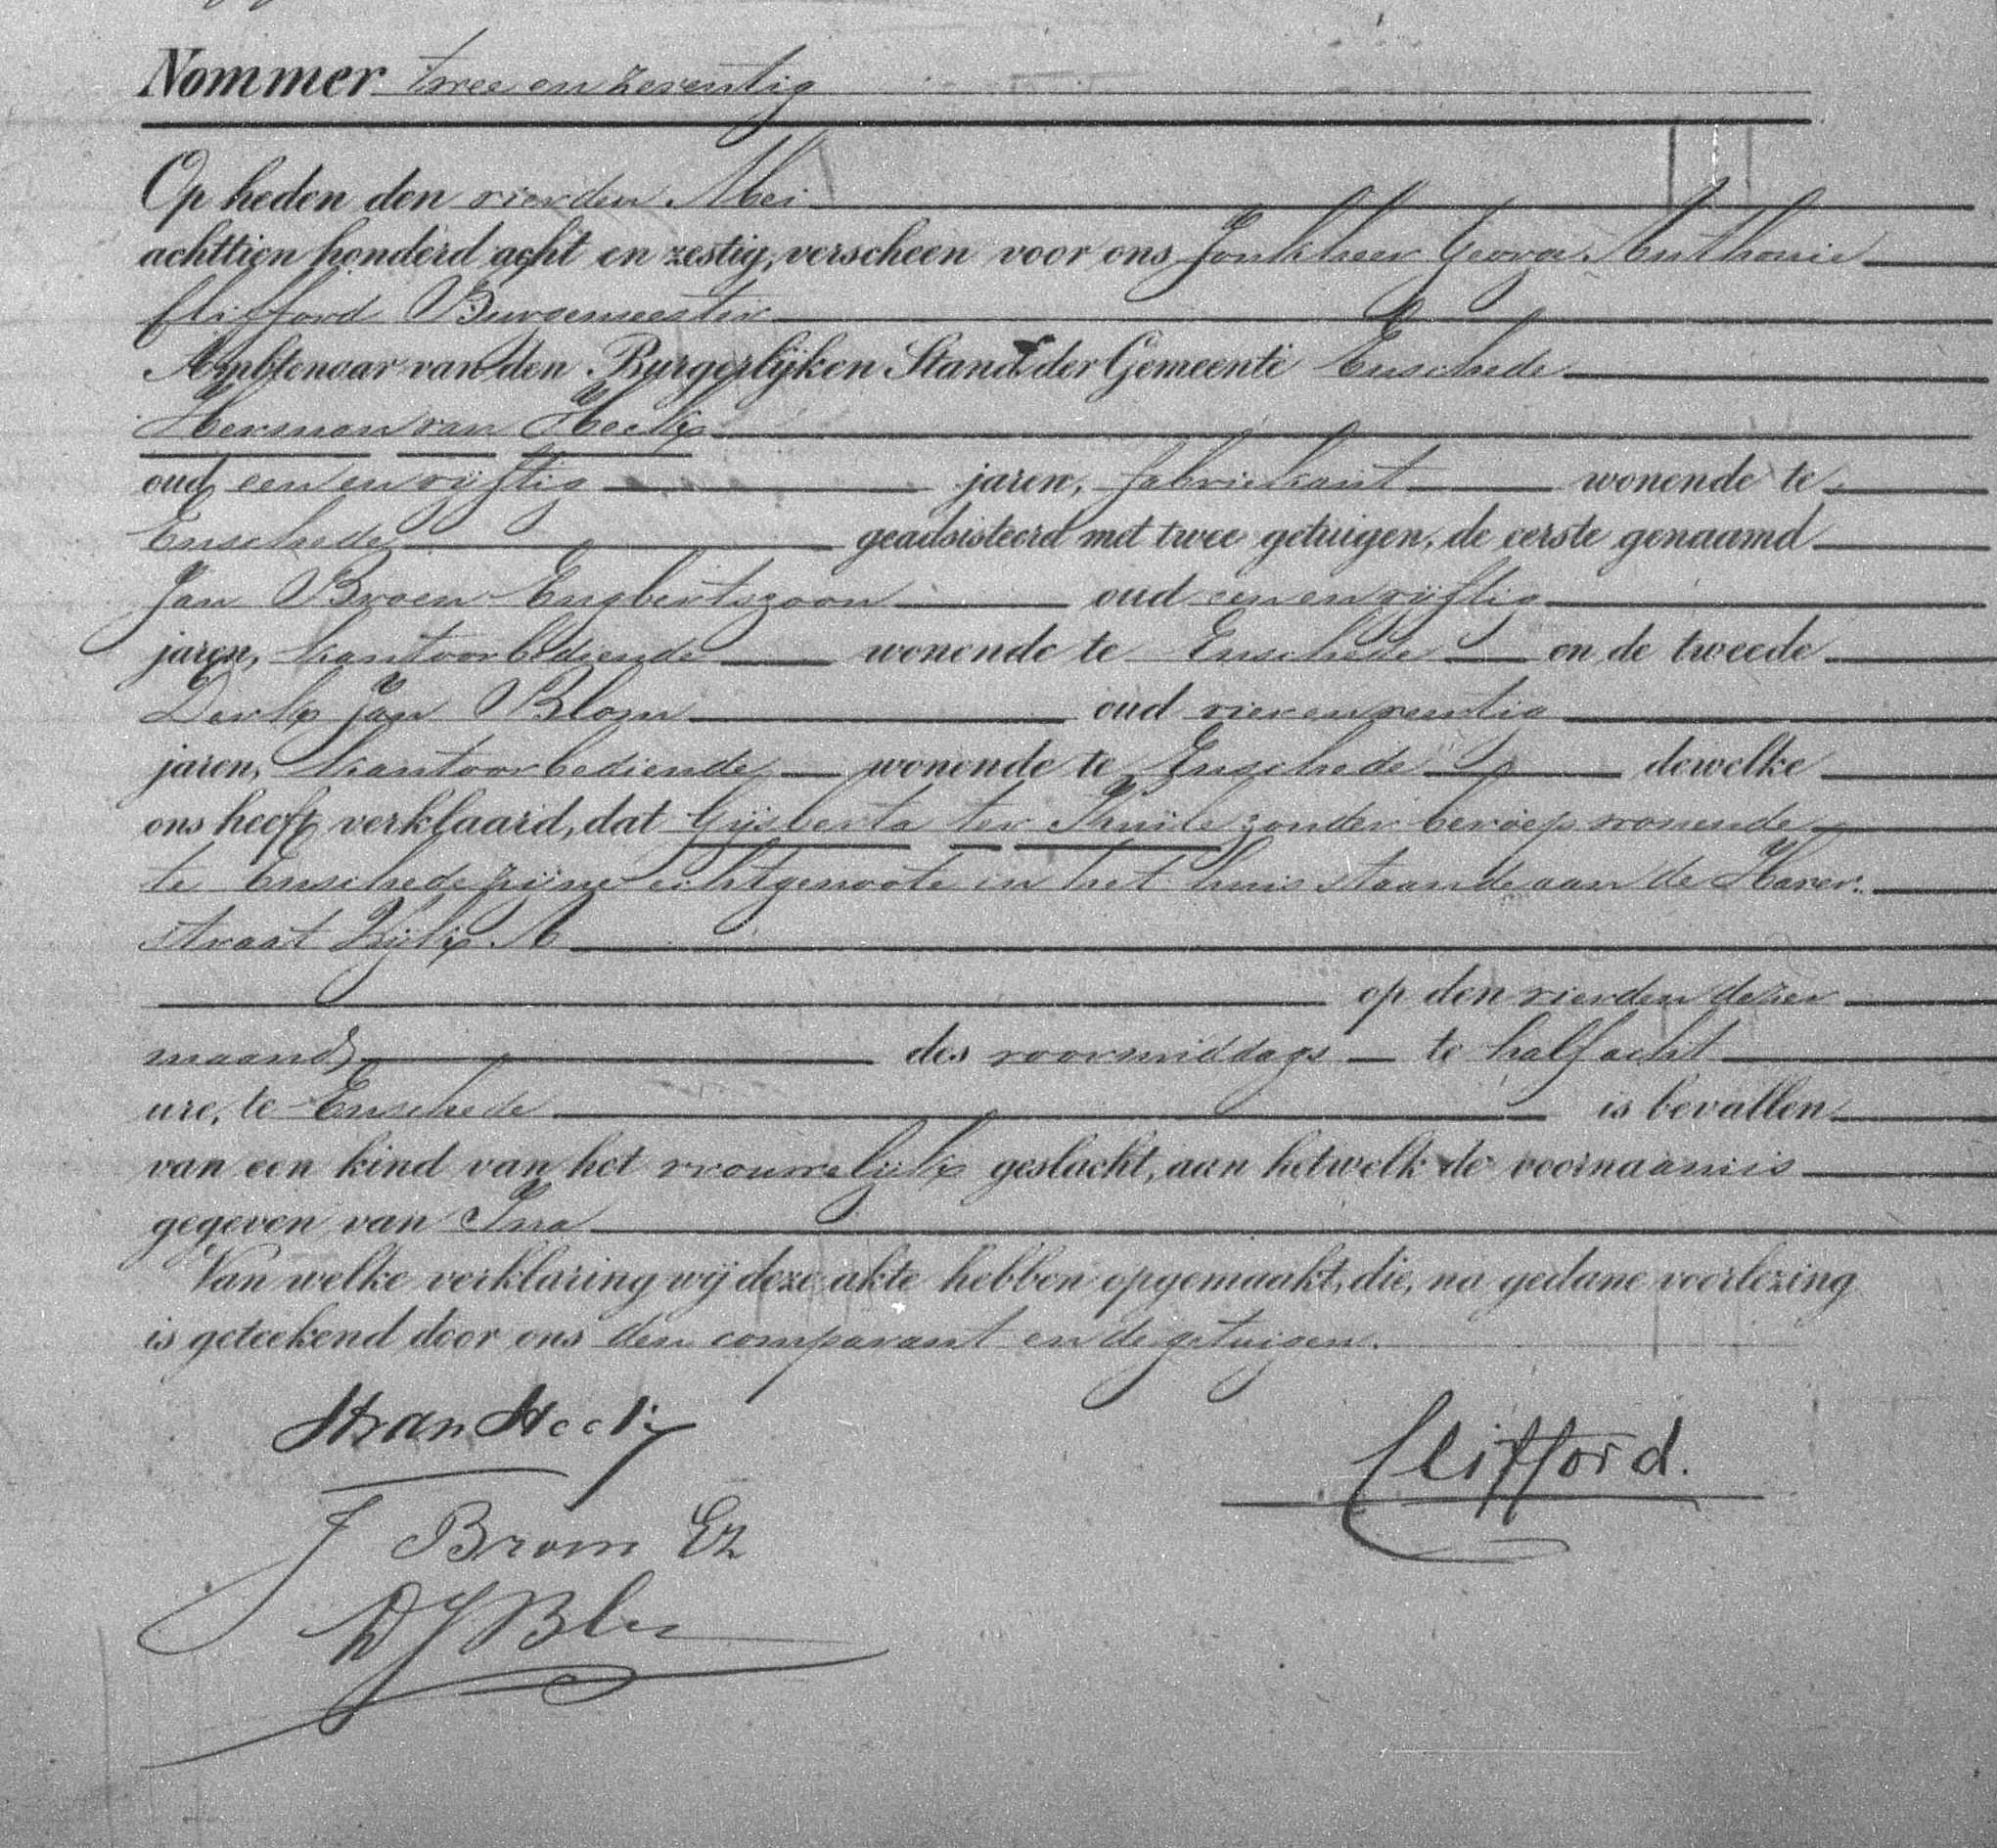 Nommer twee en zeventig
Op heden den vierden Mei
achttien honderd acht en zestig, verscheen voor ons Jonkheer George Anthonie
Clifford Burgemeester
Ambtenaar van den Burgerlijken Stand der Gemeente Enschede
Herman van Heek
oud een en vijftig jaren, fabriekant wonende te
Enschede geadsisteerd met twee getuigen, de eerste genaamd
Jan Engbertszoon oud een en vijftig
jaren, kantoorbediende wonende te Enschede en de tweede
Derk Jan Blom oud vier en veertig
jaren, kantoorbediende wonende te Enschede dewelke
ons heeft verklaard, dat Gijsberta ter Kuile zonder beroep wonende
te Enschede zijne echtgenoote in het huis staande aan de Haver-
straat Wijk A
op den vierden dezer
maand des voormiddags te half acht
ure, te Enschede is bevallen
van een kind van het vrouwelijk geslacht, aan hetwelk de voornaam is
gegeven van Ina
Van welke verklaring wij deze akte hebben opgemaakt, die, na gedane voorlezing
is geteekend door ons den comparant en de getuigen.
H van Heek
Clifford.
J Ez
D J Blom